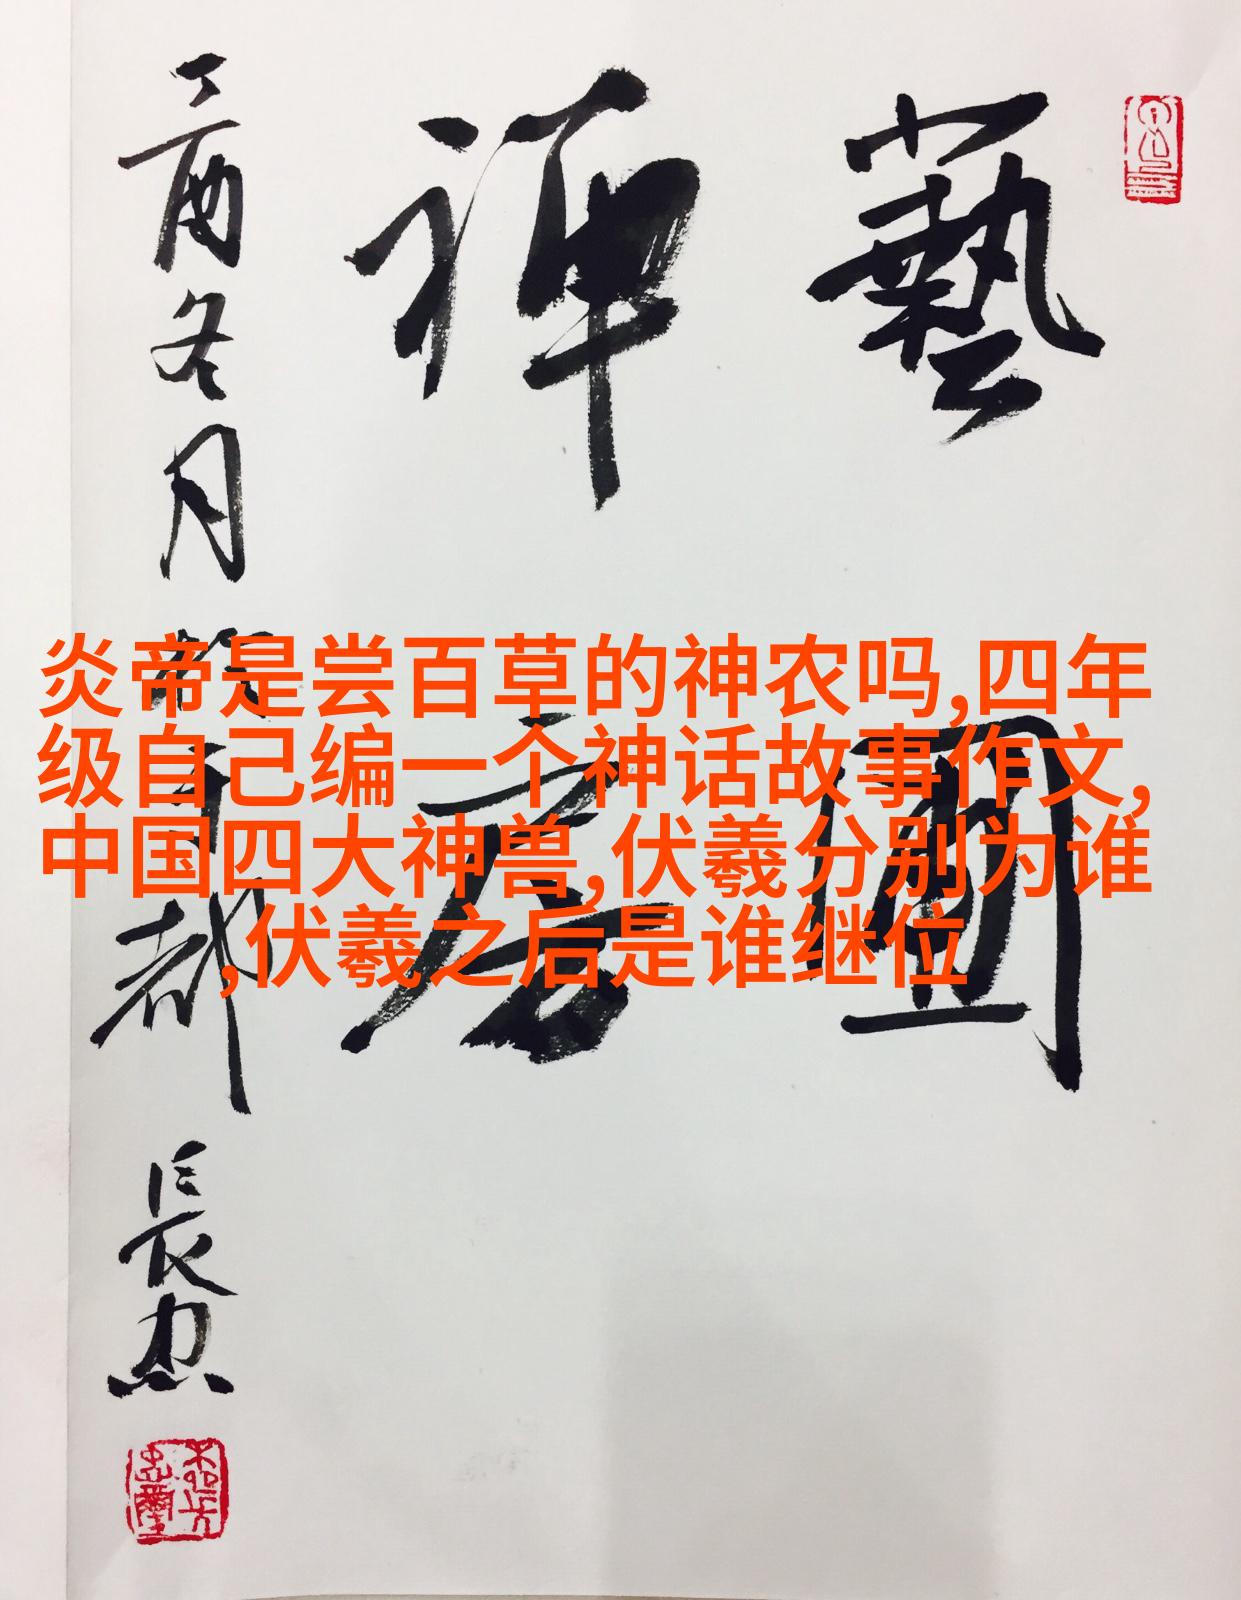 炎帝是尝百草的神农吗,四年
级自己编一个神话故事作文,
中国四大神兽,伏羲分别为谁
,伏羲之后是谁继位
藝圃
禅房
丁酉冬月
都
長忠